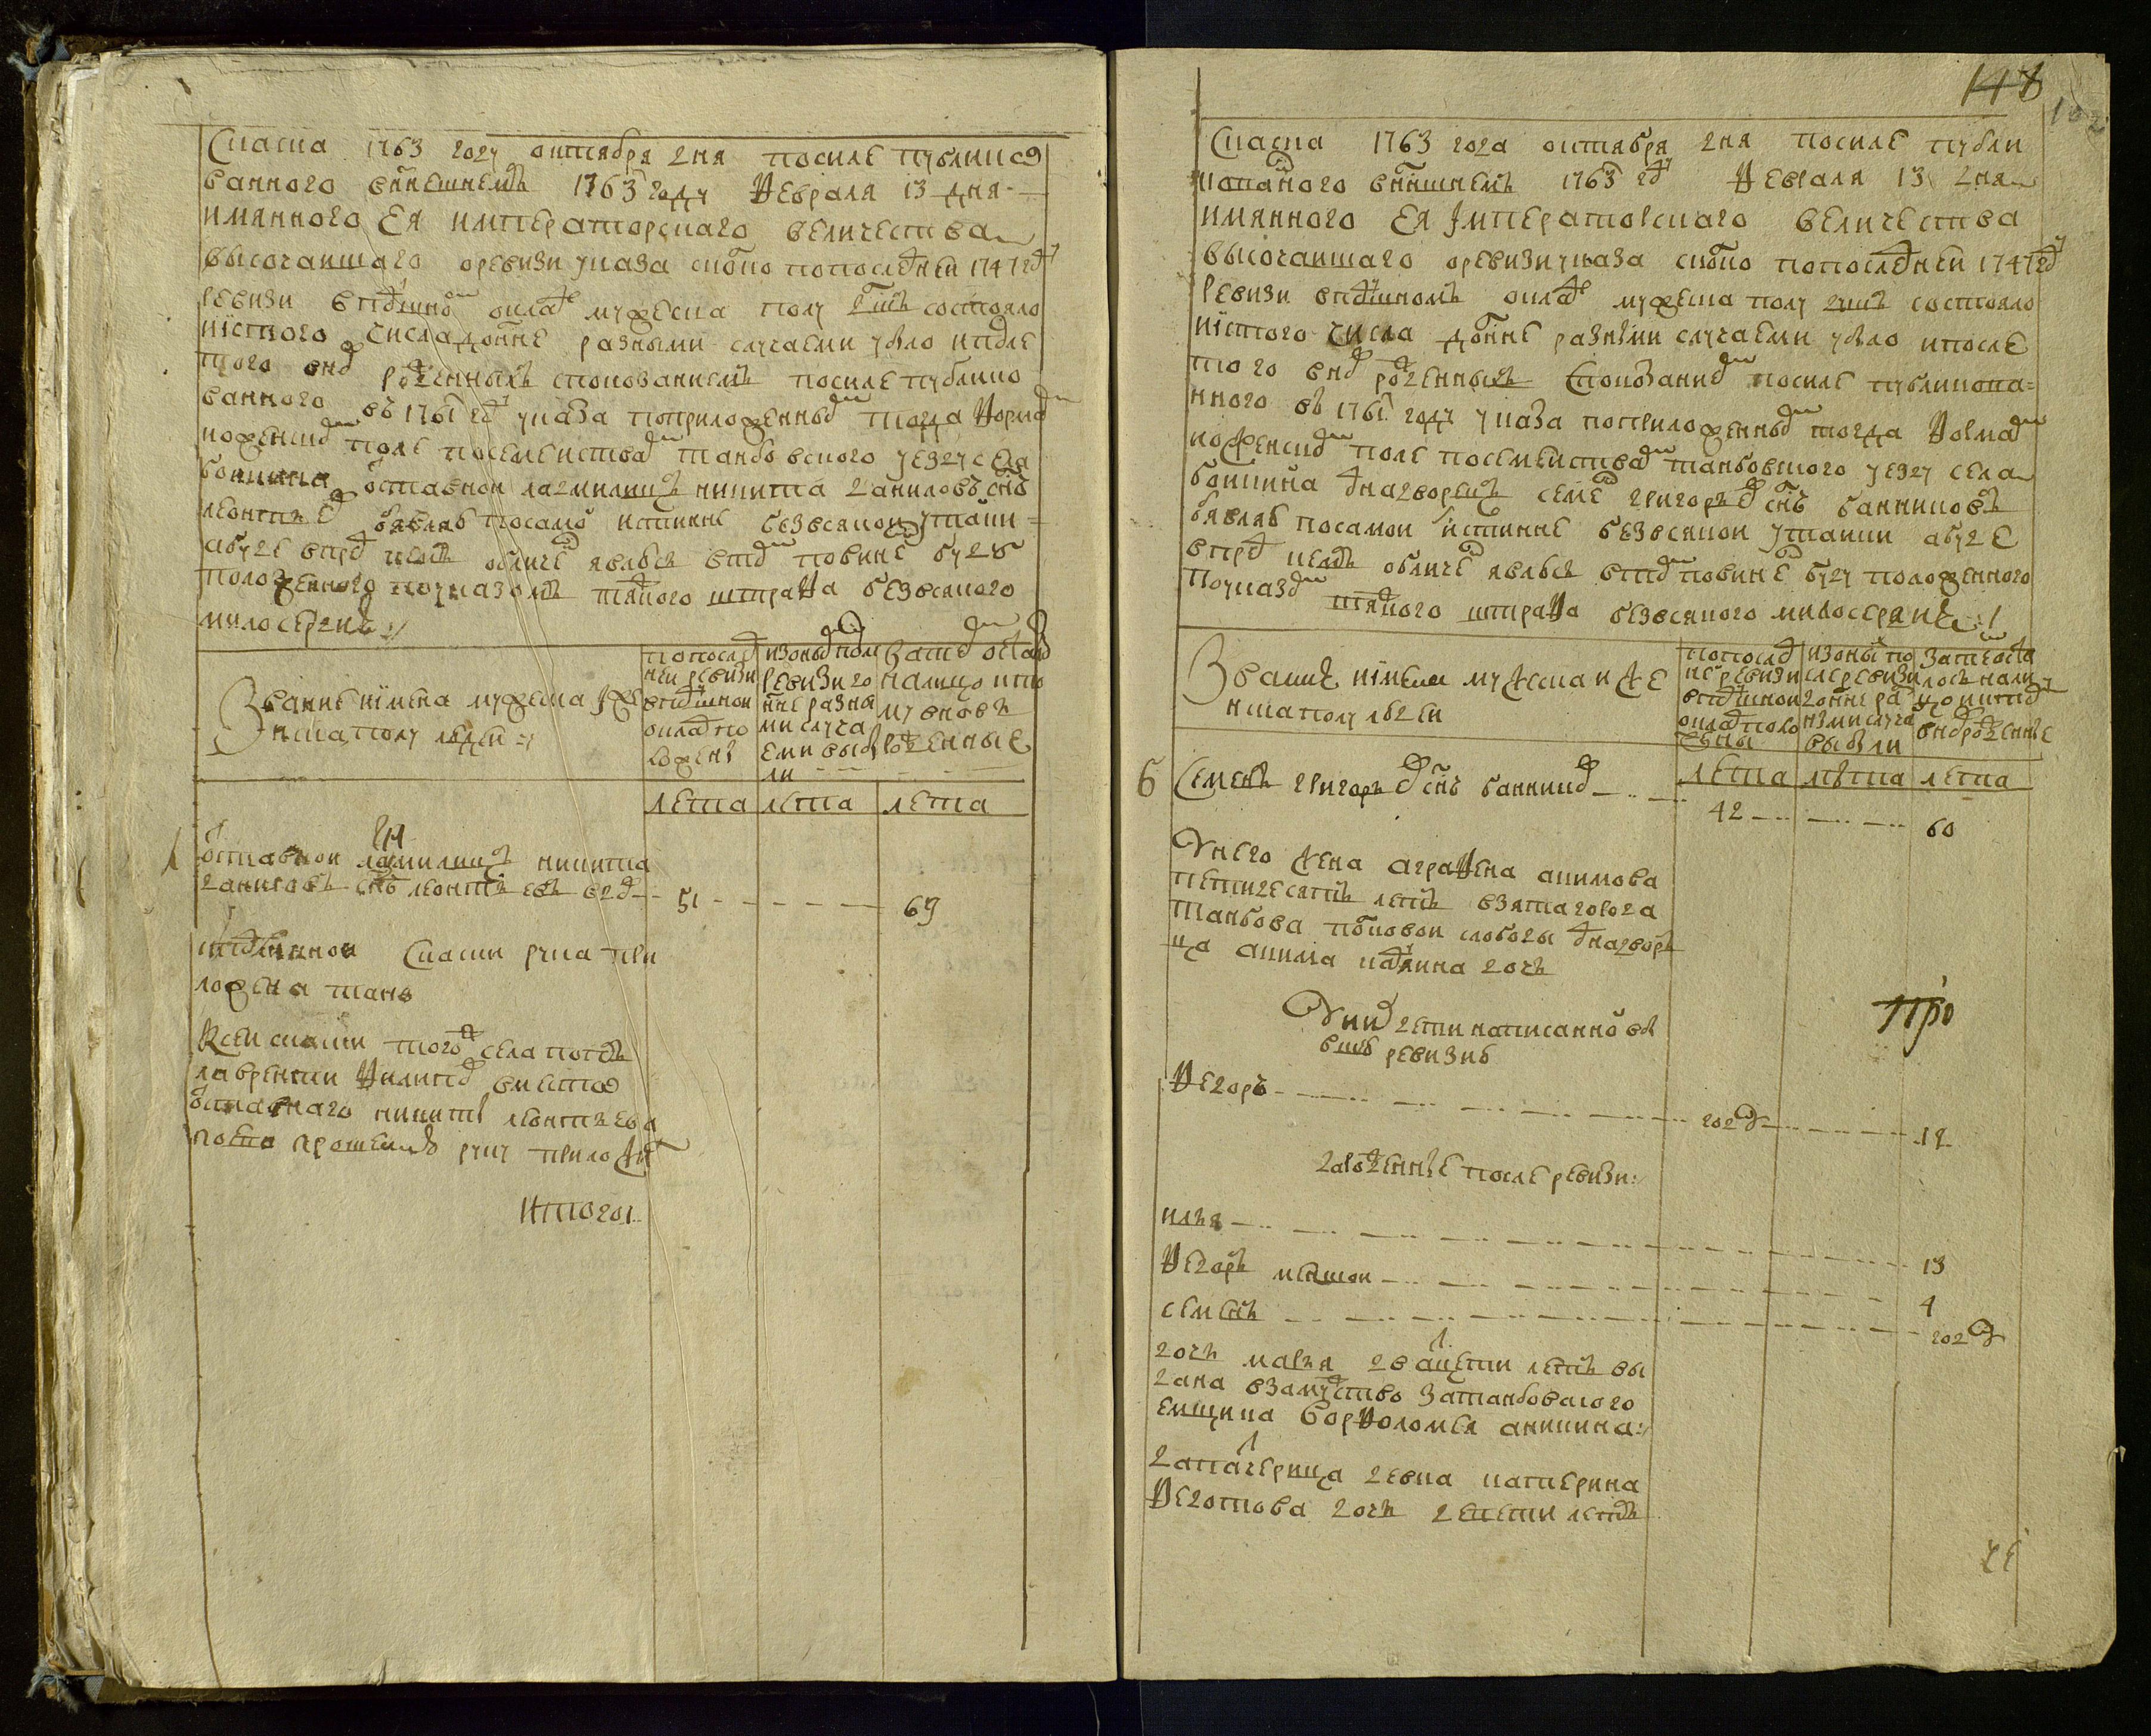 Скаска 1763 году октября дня после публико
ванного внынешнемъ 1763 году февраля 13 дня
имянного Ея императорскаго величества
высочаишаго оревизи указа сколко попоследней 1747 году
ревизи вподушномъ окладе мужеска полу душъ состояло
истого числа доныне разными случаеми убыло ипосле
того вновь рожденныхъ споказаниемъ после публико
ванного въ 1761 году указа поприложеннымъ тогда формамъ
женскимъ поле посемействамъ танбовского уезду села
бокина отставной ландмилицъ никита даниловъ снъ
леонтьевъ объявляю посамой истинне безвсякой утайки
абуде впредь кемъ обличенъ явлюсь втомъ повиненъ буду
положенного поуказомъ тяжкого штрафа безвсякого
милосердия
Звание иимена мужеска и же
нска полу людей
попослед
ней ревизи
вподушном
окладе по
ложены
изоных после
ревизи до
ныне разны
ми случа
еми выбы
ли
затем осталось
налицо ито
му вновь
рожденные
лета лета лета
1 отставной ландмилицъ никита
даниловъ снъ леонтьевъ вдовъ 51 69
кподлинной скаски рука при
ложена тако
Ксей скаски того ж села попъ
лаврентий филиповъ вместо
отставнаго никиты леонтьева
поево прошению руку приложилъ
Итого 1
148
102
Скаска 1763 года октября дня после публи
кованого внынешнемъ 1763 году февраля 13 дня
имянного Ея Императорскаго величества
высочаишаго оревизи указа сколко попоследней 1747 году
ревизи вподушномъ окладе мужеска полу душъ состояло
истого числа доныне разными случаеми убыло ипосле
того вновь рожденныхъ споказаниемъ после публикова
нного въ 1761 году указа поприложеннымъ тогда формамъ
женскимъ поле посемействамъ танбовского уезду села
бокина однодворецъ семенъ григорьевъ снъ банниковъ
объявляю посамой истинне безвсякой утайки абуде
впредь кемъ обличенъ явлюсь втомъ повиненъ буду положенного
поуказомъ тяжкого штрафа безвсякого милосердия
Звание иимена мужеска и же
нска полу людей
попослед
ней ревизи
вподушном
окладе поло
жены
изоных по
сле ревизи
доныне ра
зными случа
выбыли
затем оста
лось нали
цо иктому
вновь рожденные
лета лета лета
6 Семенъ григорьевъ снъ банниковъ 42 60
Унего жена аграфена акимова
петидесятъ летъ взята города
танбова покровской слободы однодвор
ца акима дочь
Уних дети написанной въ
ревизию
Федоръ году 12
рожденные после ревизи
илья 13
Федоръ меншой 4
семенъ году
1
дочь марья дватцети летъ вы
дана взамужство затанбовского
емщика борфоломея аникина
1
Падчерица девка катерина
Федотова дочь десети летъ
про